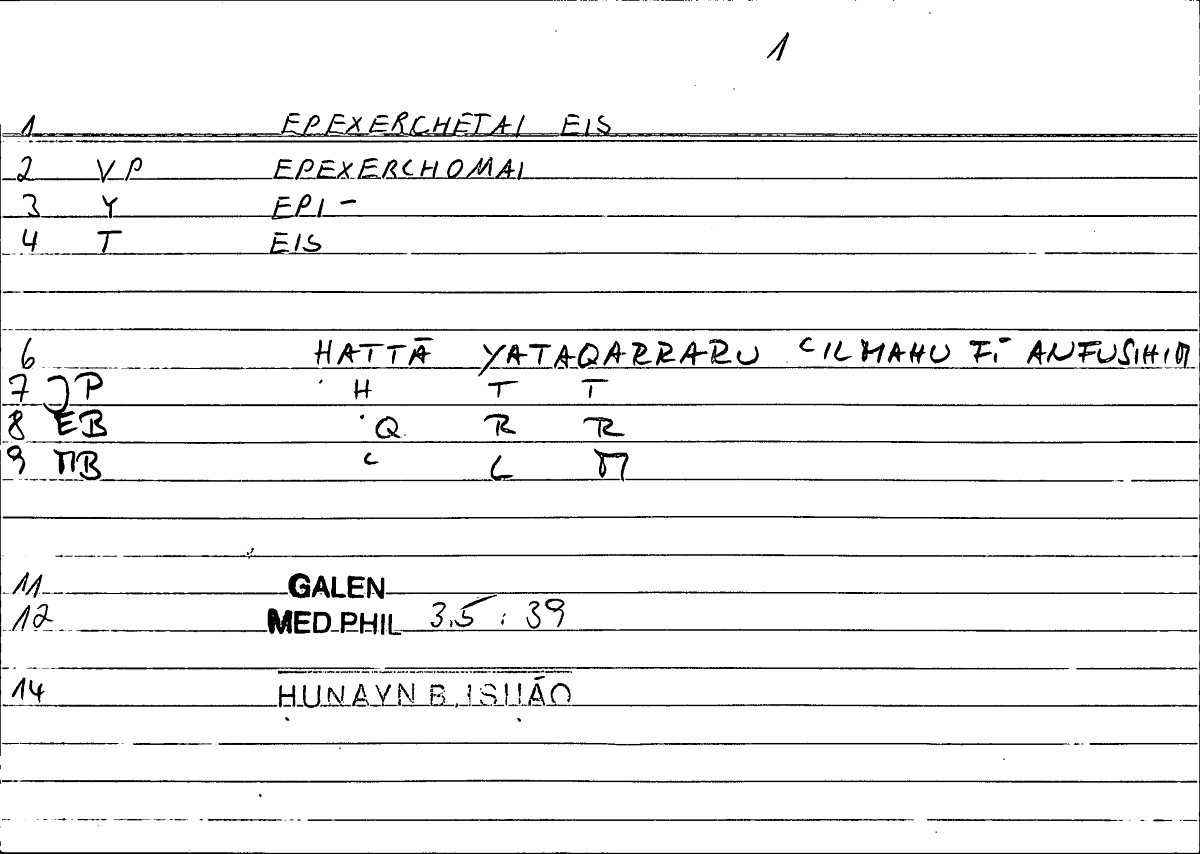 1
1 EPEXERCHETAI EIS
2 VP EPEXERCHOMAI
3 Y EPI-
4 T EIS
6 HATTĀ YATAQARRARU ʿILMAHU FĪ ANFUSIHIM
7 JP Ḥ T T
8 EB Q R R
9 MB ʿ L M
11 GALEN
12 MED PHIL 3,5 : 39
14 ḤUNAYN B. ISḤĀQ